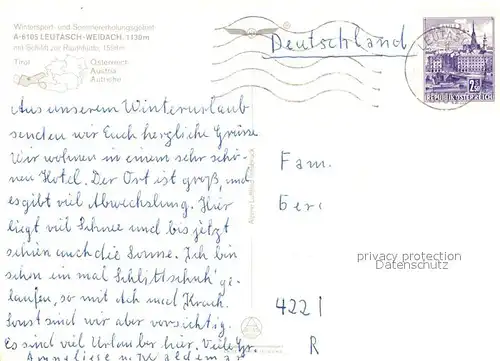 Wintersport- und Sommererholungsgebiet
A-6105 LEUTASCH-WEIDACH, 1130m
mit Schilift zur Rauthhütte, 1598m
Tirol
Österreich
Austria
Autriche
Deutschland
LEUTAS
REPUBLIK ÖSTERREICH
Aus unserem Winterurlaub
senden wir Euch herzliche Grüsse
Wir wohnen in einem sehr schö-
nen Hotel. Der Ort ist groß, und
es gibt viel Abwechslung. Hier
liegt viel Schnee und bis jetzt
schien auch die Sonne. Ich bin
schon ein mal Schlittschuh ge-
laufen, so mit Ach und Krach.
Sonst sind wir aber vorsichtig.
Es sind viel Urlauber hier. Viele Gr.
Anneliese u. Waldemar
Fam.
privacy protection
Datenschutz
4221
R